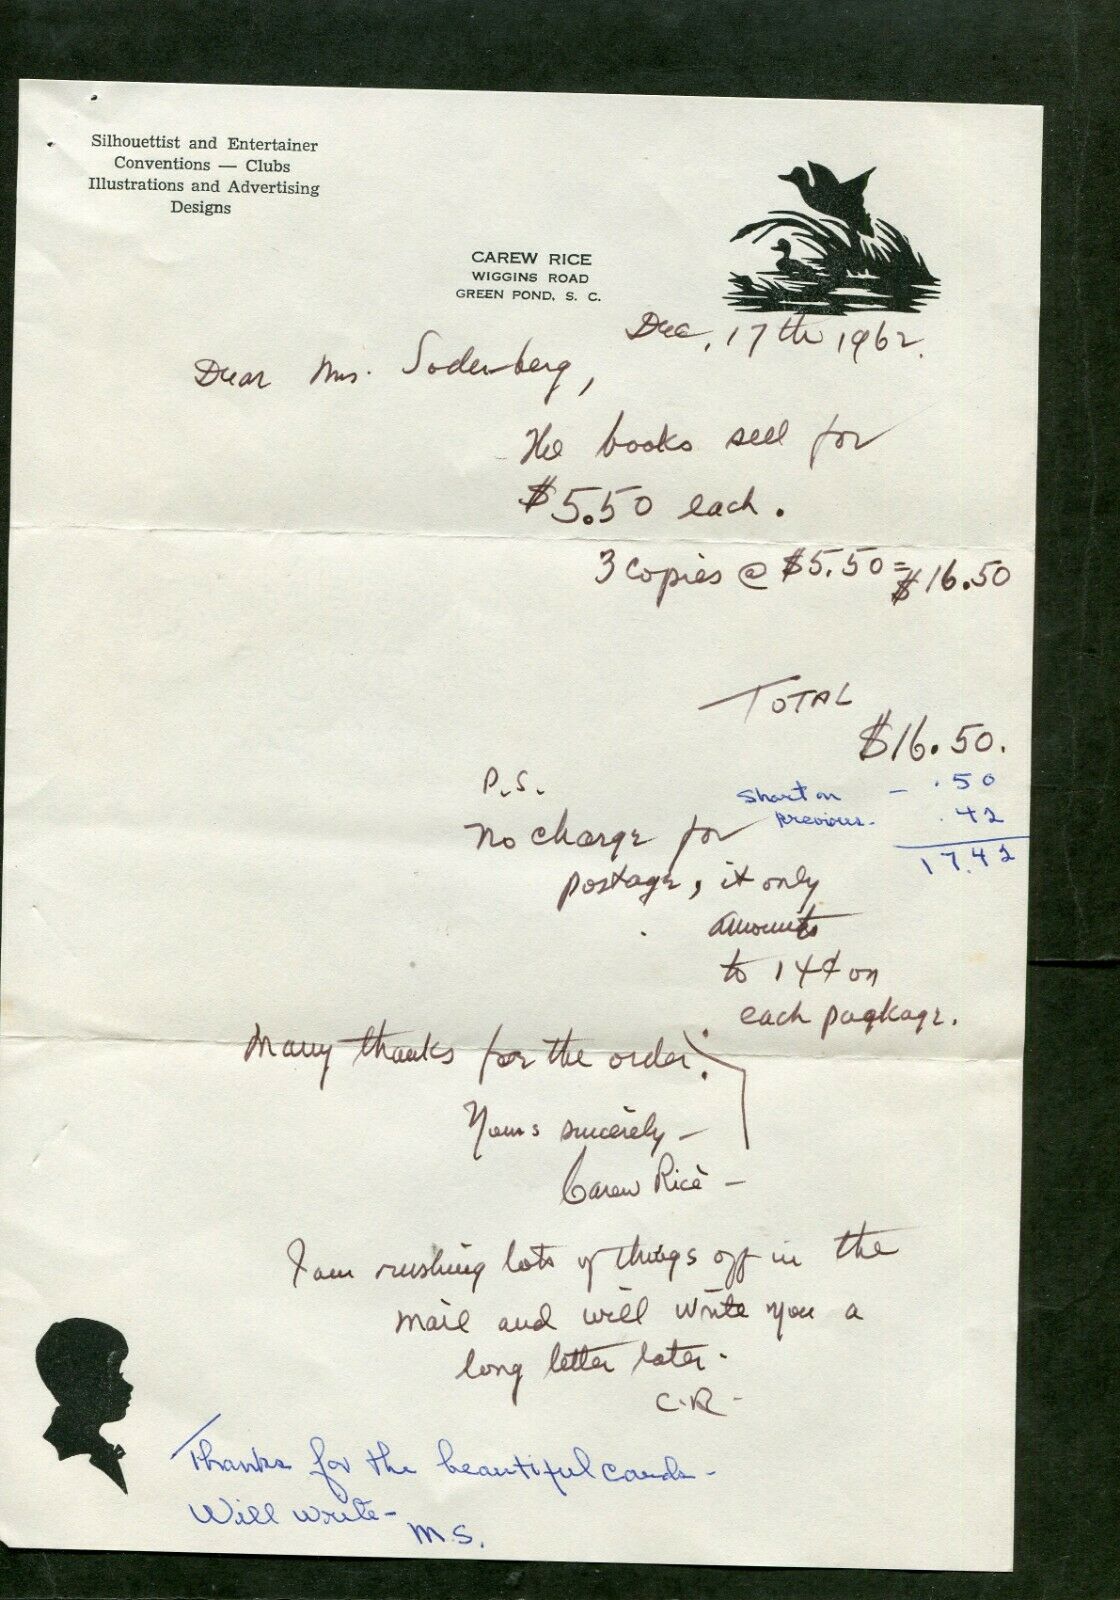 Silhouettist and Entertainer
Conventions — Clubs
Illustrations and Advertising
Designs
CAREW RICE
WIGGINS ROAD
GREEN POND, S. C.
Dec, 17th 1962.
Dear Mrs. Soderberg,
The books sell for
$5.50 each.
3 copies @ $5.50 = $16.50
TOTAL
$16.50.
P.S.
Short on - .50
previous- .42
17.42
No charge for
postage, it only
amounts
to 14¢ on
each package.
Many thanks for the order.
Yours sincerely -
Carew Rice -
I am rushing lots of things off in the
mail and will write you a
long letter later.
C.R.-
Thanks for the beautiful cards-
Will write-
M.S.